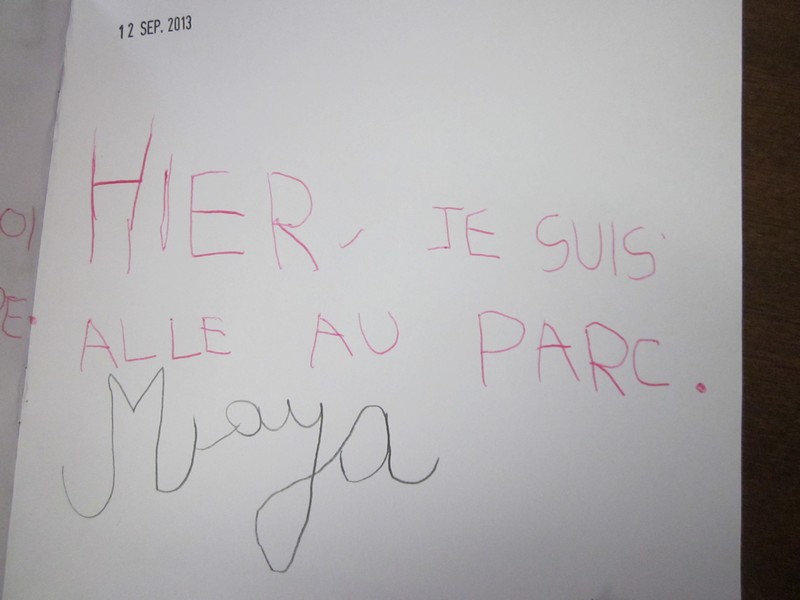 12 SEP. 2013
HIER, JE SUIS
ALLE AU PARC.
Maya